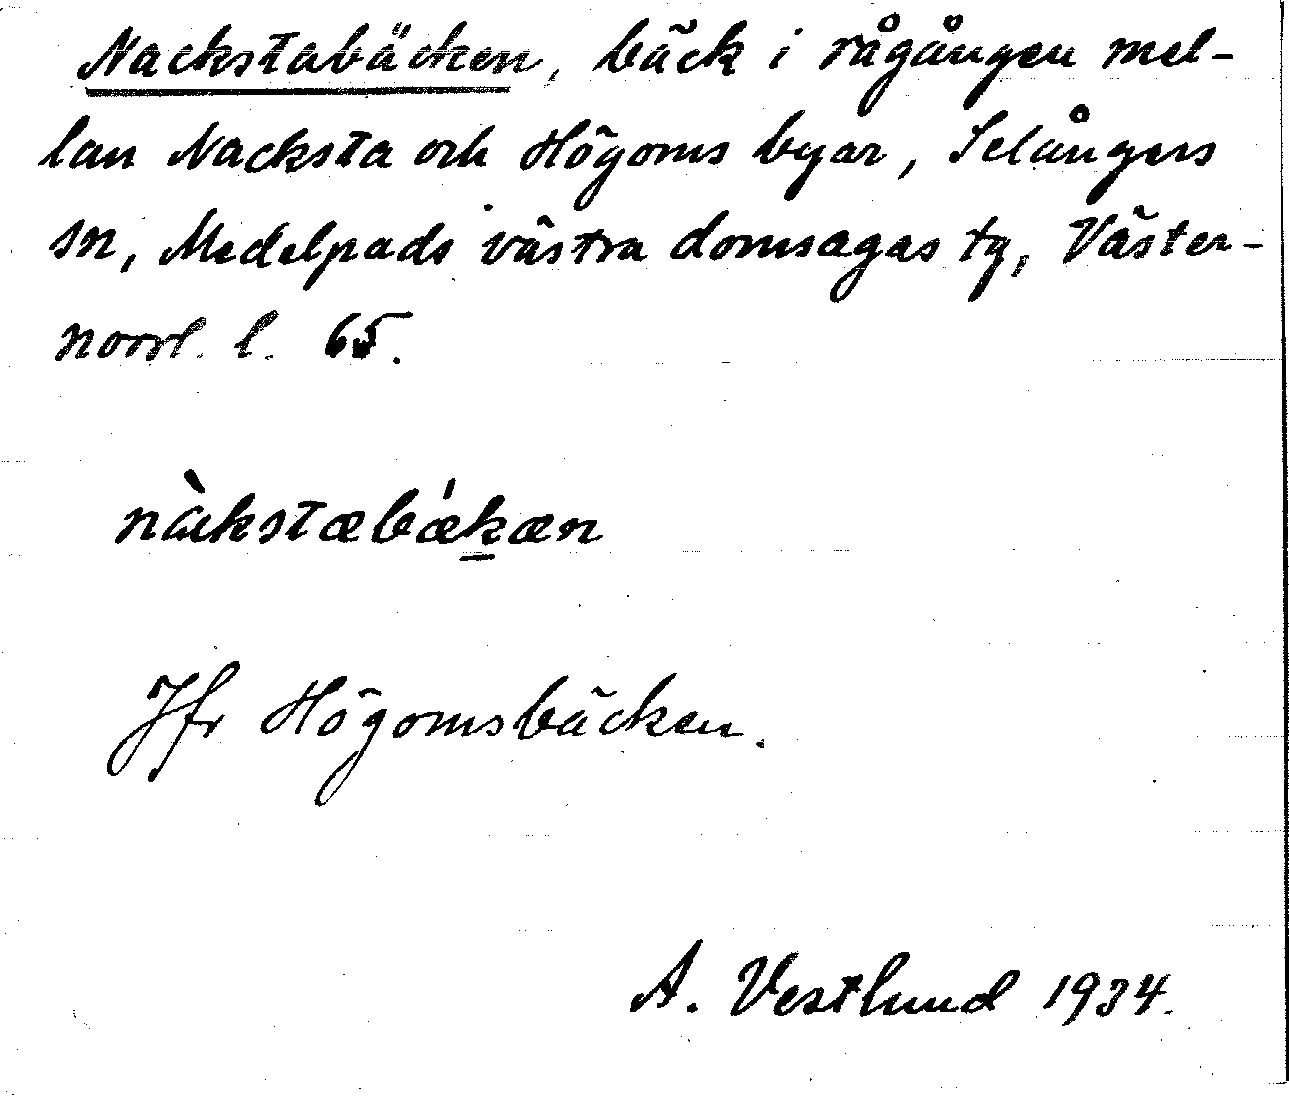 Nackstabäcken, bäck i rågången mel-
lan Nacksta och Högoms byar, Selångers
sn, Medelpads västra domsagas tg, Väster-
norrl. l. 65.
nàkstæbǽk̲æn
Jfr Högomsbäcken.
A. Vestlund 1934.